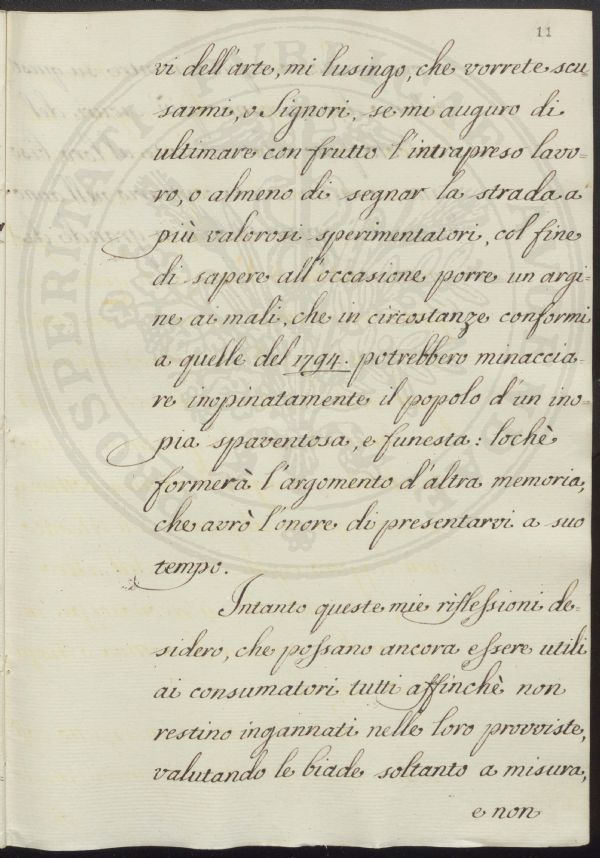 11
vi dell'arte, mi lusingo, che vorrete scu
sarmi, o Signori, se mi auguro di
ultimare con frutto l'intrapreso lavo=
ro, o almeno di segnar la strada a
più valorosi sperimentatori, col fine
di sapere all'occasione porre un argi=
ne ai mali, che in circostanze conformi
a quelle del 1794. potrebbero minaccia=
re inopinatamente il popolo d'un ino=
pia spaventosa, e funesta: lochè
formerà l'argomento d'altra memoria,
che avrò l'onore di presentarvi a suo
tempo.
Intanto queste mie riflessioni de=
sidero, che possano ancora essere utili
ai consumatori tutti affinchè non
restino ingannati nelle loro provviste,
valutando le biade soltanto a misura,
e non